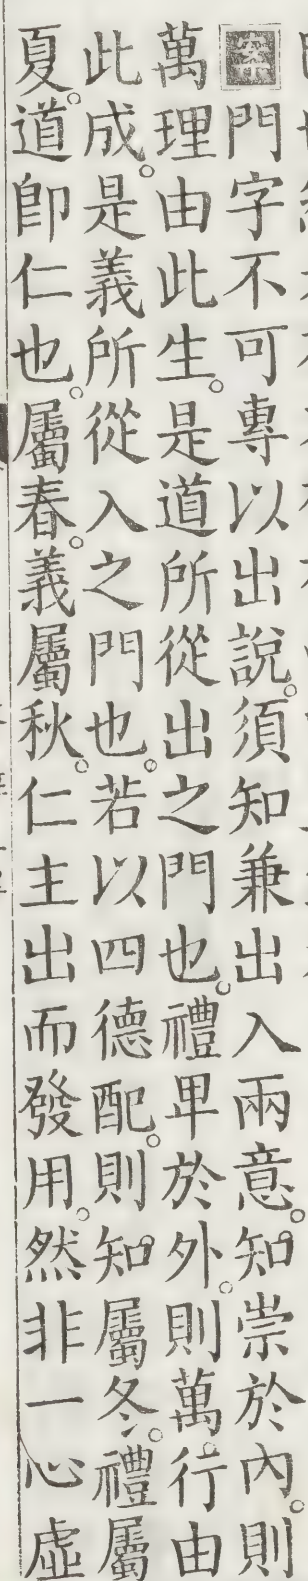 案門字不可專以出說。須知兼出入兩意。知崇於內。則
萬理由此生。是道所從出之門也。禮卑於外。則萬行由
此成。是義所從入之門也。若以四德配。則知屬冬。禮屬
夏。道卽仁也。屬春。義屬秋。仁主出而發用。然非一心虛